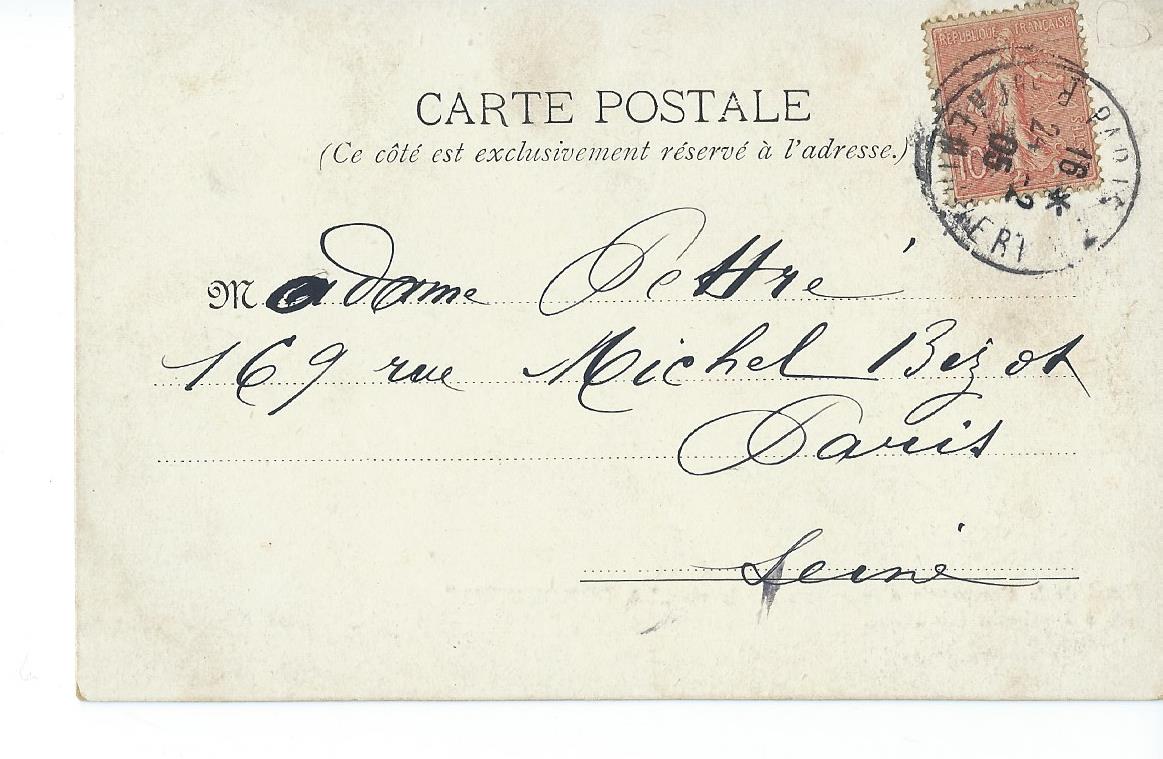 RÉPUBLIQUE FRANÇAISE
10
POSTES
16 *
24 -2
05
CARTE POSTALE
(Ce côté est exclusivement réservé à l'adresse.)
Madame Pettré
169 rue Michel Bizot
Paris
Seine